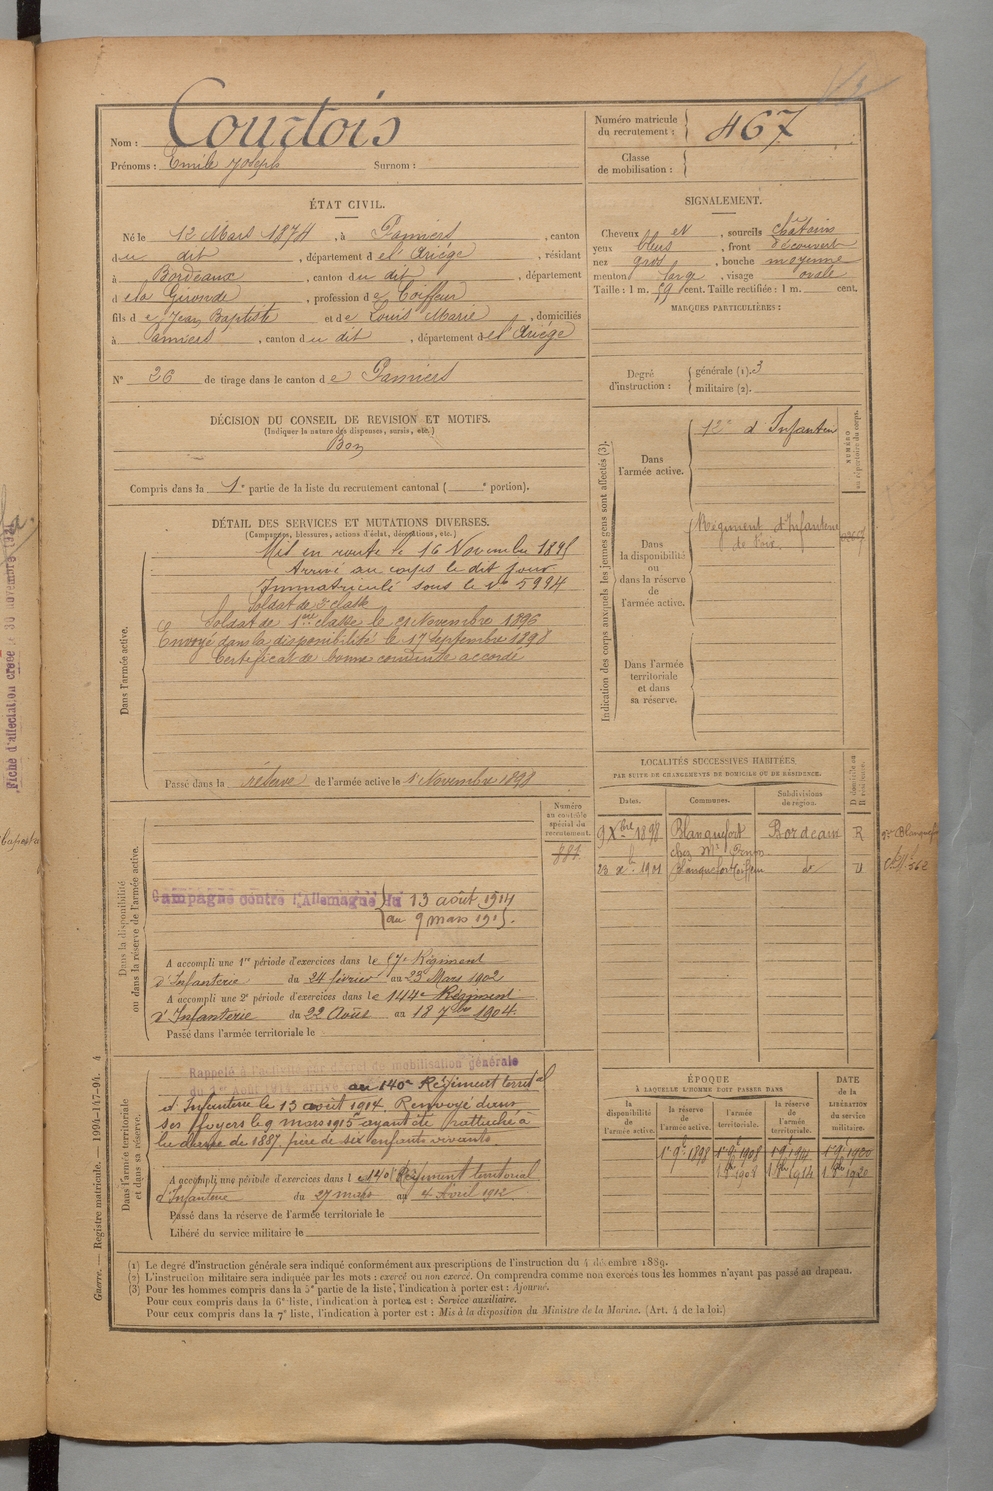 Nom : Courtois
Prénoms : Emile Joseph Surnom :
Numéro matricule du recrutement : 467
Classe de mobilisation :
ÉTAT CIVIL.
Né le 12 Mars 1874, à Pamiers, canton
du dit, département de l'Ariége, résidant
à Bordeaux, canton du dit, département
de la Gironde, profession de Coiffeur
fils de Jean Baptiste et de Louis Marie, domiciliés
à Pamiers, canton du dit, département de l'Ariége
N° 26 de tirage dans le canton de Pamiers
SIGNALEMENT.
Cheveux et, sourcils châtains
yeux bleus, front découvert
nez gros, bouche moyenne
menton large, visage ovale
Taille : 1 m. 59 cent. Taille rectifiée : 1 m. cent.
MARQUES PARTICULIÈRES :
Degré d'instruction : générale (1). 3
militaire (2).
DÉCISION DU CONSEIL DE REVISION ET MOTIFS.
(Indiquer la nature des dispenses, sursis, etc.)
Bon
Compris dans la 1e partie de la liste du recrutement cantonal ( e portion).
DÉTAIL DES SERVICES ET MUTATIONS DIVERSES.
(Campagnes, blessures, actions d'éclat, décorations, etc.)
Dans l'armée active.
Mis en route le 16 Novembre 1895
Arrivé au corps le dit jour
Immatriculé sous le N° 5994
Soldat de 2e classe
Soldat de 1ere classe le 21 Novembre 1896
Envoyé dans la disponibilité le 17 Septembre 1898
Certificat de bonne conduite accordé
Passé dans la réserve de l'armée active le 1 Novembre 1898
Indication des corps auxquels les jeunes gens sont affectés (3).
NUMÉRO au répertoire du corps.
Dans l'armée active.
12e d'Infanterie
Dans la disponibilité ou dans la réserve de l'armée active.
Régiment d'Infanterie
de Foix
Dans l'armée territoriale et dans sa réserve.
LOCALITÉS SUCCESSIVES HABITÉES
PAR SUITE DE CHANGEMENTS DE DOMICILE OU DE RÉSIDENCE.
Dates. Communes. Subdivisions de région. D domicile ou R résidence.
9 Xbre 1898 Blanquefort Bordeaux R
chez Mr
23 1901 Blanquefort Coiffeur
Numéro au contrôle spécial du recrutement.
881
Dans la disponibilité ou dans la réserve de l'armée active.
Campagne contre l'Allemagne du 13 août 1914
au 9 mars 1915.
A accompli une 1re période d'exercices dans le 57e Régiment
d'Infanterie du 24 février au 23 Mars 1902
A accompli une 2e période d'exercices dans le 144e Régiment
d'Infanterie du 22 Août au 18 7bre 1904
Passé dans l'armée territoriale le
Dans l'armée territoriale et dans sa réserve.
Rappelé à l'activité par décret de mobilisation générale
du 1er Août 1914, arrivé au 140e Régiment territal
d'Infanterie le 13 août 1914. Renvoyé dans
ses foyers le 9 mars 1915 ayant été rattaché à
la classe de 1887, père de six enfants vivants.
A accompli une période d'exercices dans le 140e Régiment territorial
d'Infanterie du 27 mars au 4 Avril 1912
Passé dans la réserve de l'armée territoriale le
Libéré du service militaire le
ÉPOQUE
À LAQUELLE L'HOMME DOIT PASSER DANS
DATE DE LA LIBÉRATION du service militaire.
la disponibilité de l'armée active. la réserve de l'armée active. l'armée territoriale. la réserve de l'armée territoriale.
1er 9e 1898 1er 9e 1908 1er 9e 1914 1er 9e 1920
1908 1914 1920
(1) Le degré d'instruction générale sera indiqué conformément aux prescriptions de l'instruction du 4 décembre 1889.
(2) L'instruction militaire sera indiquée par les mots : exercé ou non exercé. On comprendra comme non exercés tous les hommes n'ayant pas passé au drapeau.
(3) Pour les hommes compris dans la 5e partie de la liste, l'indication à porter est : Ajourné.
Pour ceux compris dans la 6e liste, l'indication à porter est : Service auxiliaire.
Pour ceux compris dans la 7e liste, l'indication à porter est : Mis à la disposition du Ministre de la Marine. (Art. 4 de la loi.)
Guerre. — Registre matricule. — 1994-147-94. 4
Fiche d'affectation créée le 30 novembre